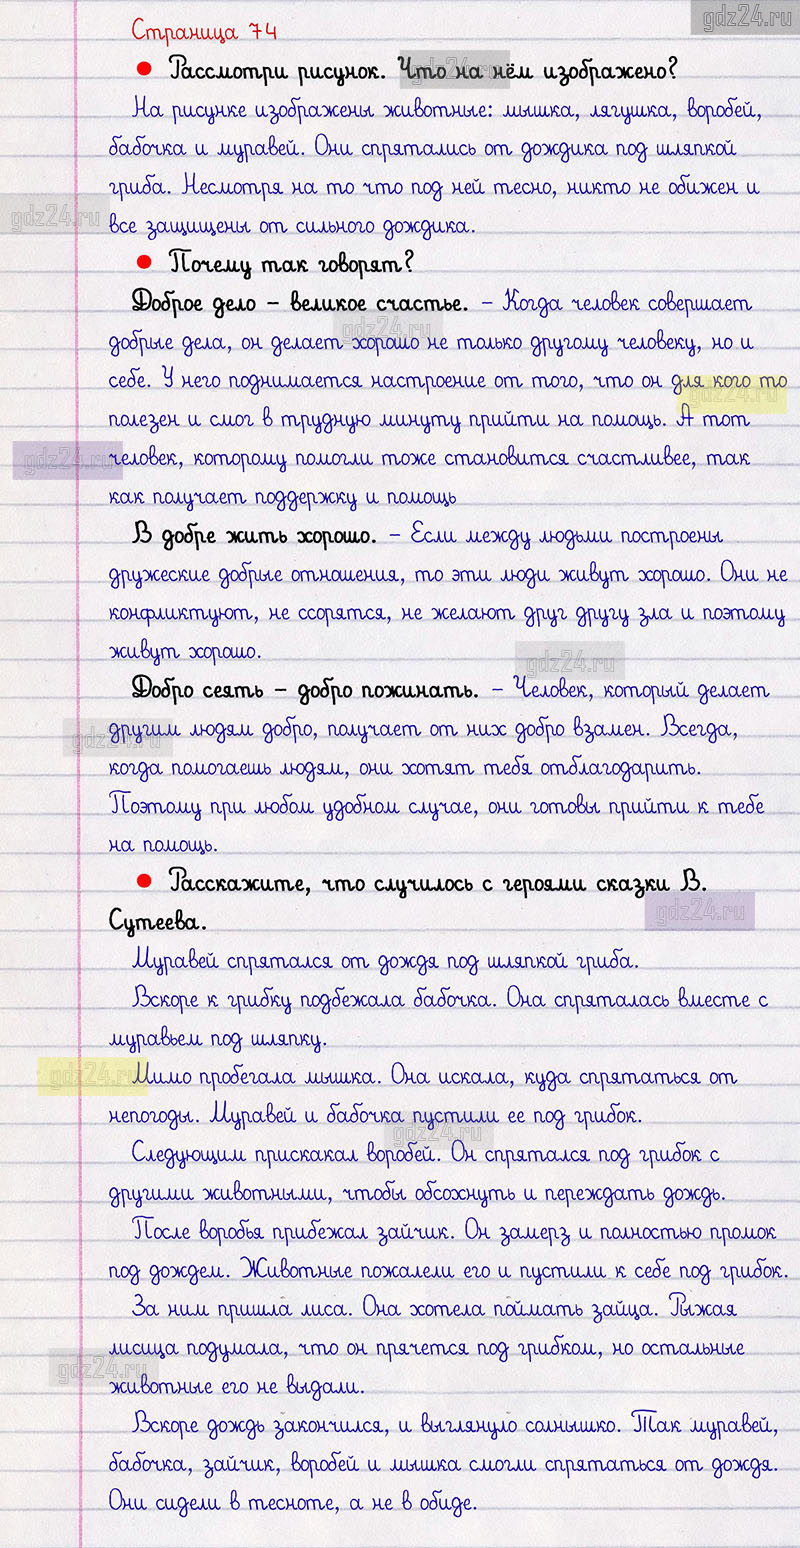 gdz24.ru
Страница 74
• Рассмотри рисунок. Что на нём изображено?
gdz24.ru
На рисунке изображены животные: мышка, лягушка, воробей,
бабочка и муравей. Они спрятались от дождика под шляпкой
гриба. Несмотря на то что под ней тесно, никто не обижен и
gdz24.ru
все защищены от сильного дождика.
• Почему так говорят?
Доброе дело – великое счастье. – Когда человек совершает
gdz24.ru
добрые дела, он делает хорошо не только другому человеку, но и
себе. У него поднимается настроение от того, что он для кого то
gdz24.ru
полезен и смог в трудную минуту прийти на помощь. А тот
gdz24.ru
человек, которому помогли тоже становится счастливее, так
как получает поддержку и помощь
В добре жить хорошо. – Если между людьми построены
дружеские добрые отношения, то эти люди живут хорошо. Они не
конфликтуют, не ссорятся, не желают друг другу зла и поэтому
живут хорошо.
gdz24.ru
Добро сеять – добро пожинать. – Человек, который делает
другим людям добро, получает от них добро взамен. Всегда,
gdz24.ru
когда помогаешь людям, они хотят тебя отблагодарить.
Поэтому при любом удобном случае, они готовы прийти к тебе
на помощь.
• Расскажите, что случилось с героями сказки В.
gdz24.ru
Сутеева.
Муравей спрятался от дождя под шляпкой гриба.
Вскоре к грибку подбежала бабочка. Она спряталась вместе с
муравьем под шляпку.
gdz24.ru
Мимо пробегала мышка. Она искала, куда спрятаться от
непогоды. Муравей и бабочка пустили ее под грибок.
gdz24.ru
Следующим прискакал воробей. Он спрятался под грибок с
другими животными, чтобы обсохнуть и переждать дождь.
После воробья прибежал зайчик. Он замерз и полностью промок
под дождем. Животные пожалели его и пустили к себе под грибок.
За ним пришла лиса. Она хотела поймать зайца. Рыжая
лисица подумала, что он прячется под грибком, но остальные
gdz24.ru
животные его не выдали.
Вскоре дождь закончился, и выглянуло солнышко. Так муравей,
бабочка, зайчик, воробей и мышка смогли спрятаться от дождя.
Они сидели в тесноте, а не в обиде.